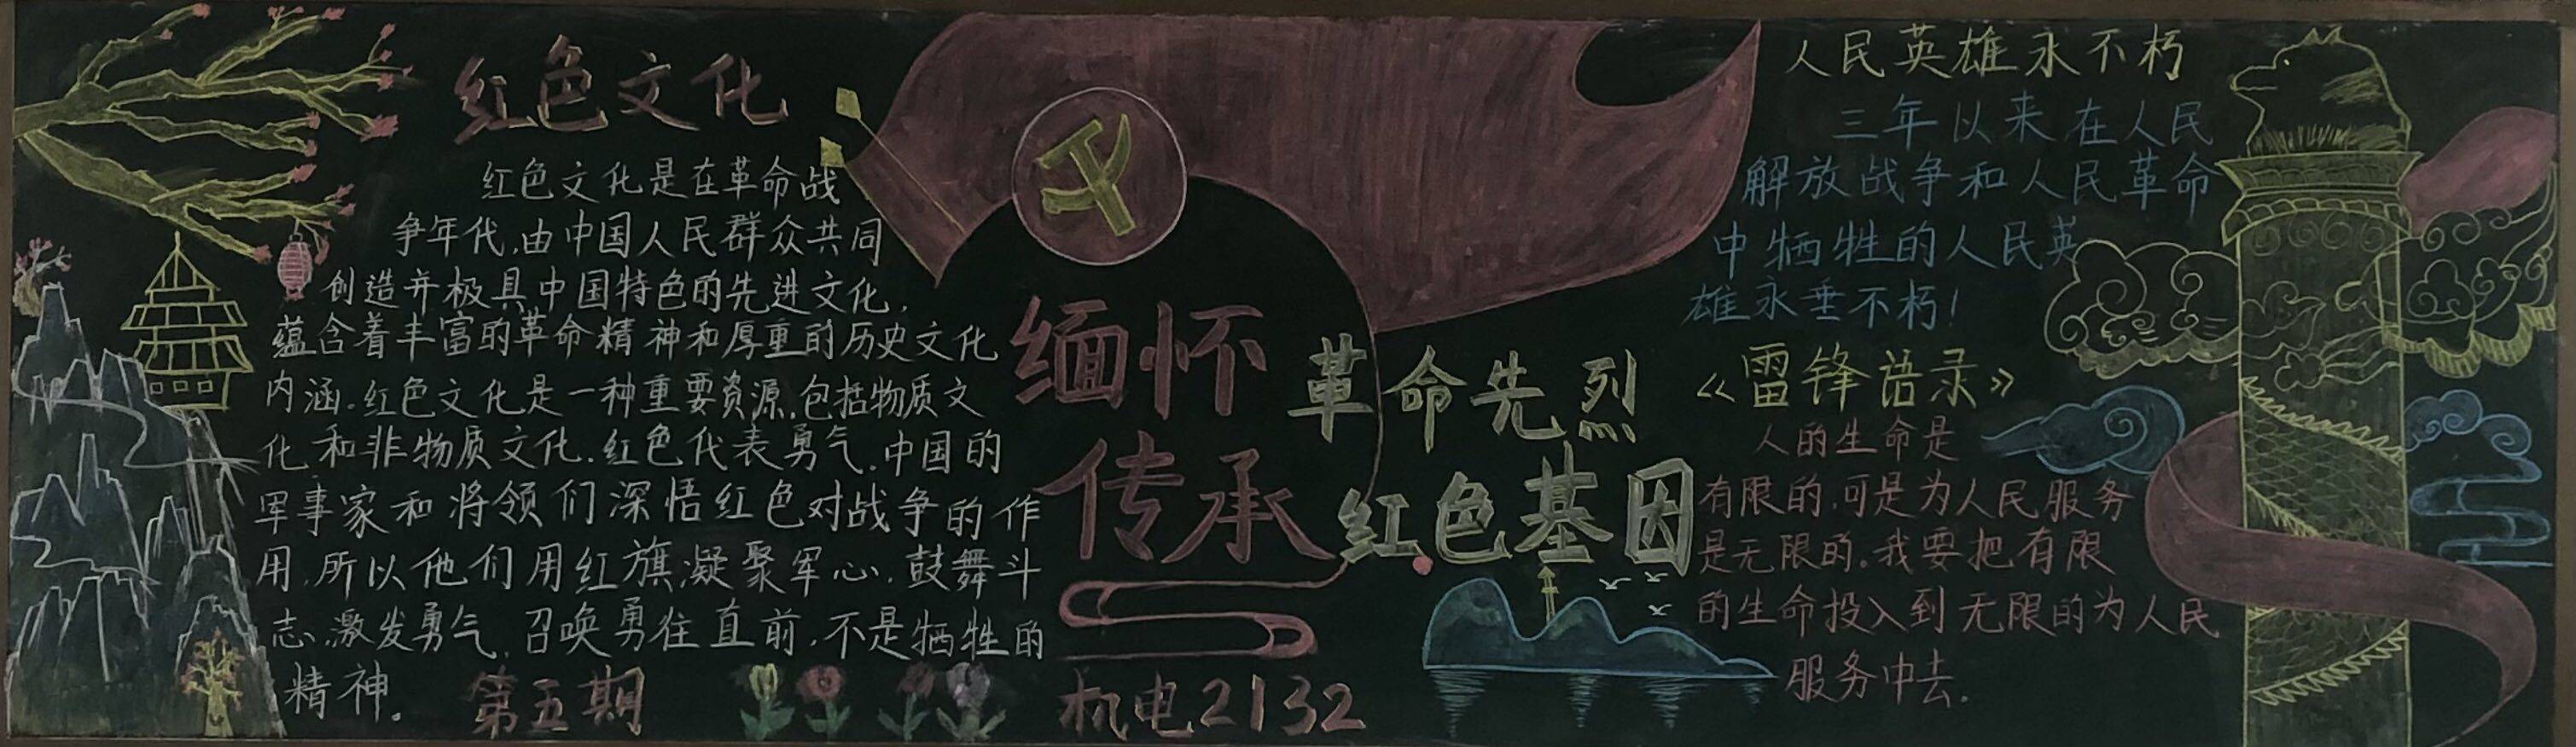 红色文化
红色文化是在革命战
争年代,由中国人民群众共同
创造并极具中国特色的先进文化,
蕴含着丰富的革命精神和厚重的历史文化
内涵。红色文化是一种重要资源,包括物质文
化和非物质文化.红色代表勇气.中国的
军事家和将领们深悟红色对战争的作
用,所以他们用红旗凝聚军心,鼓舞斗
志,激发勇气,召唤勇往直前,不是牺牲的
精神。
第五期
缅怀
革命先烈
传承
红色基因
机电2132
人民英雄永不朽
三年以来在人民
解放战争和人民革命
中牺牲的人民英
雄永垂不朽!
《雷锋语录》
人的生命是
有限的,可是为人民服务
是无限的。我要把有限
的生命投入到无限的为人民
服务中去.